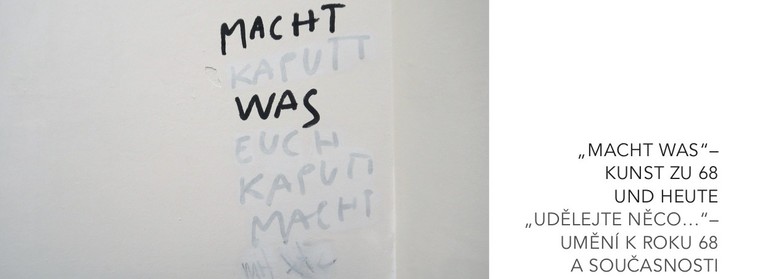 MACHT
KAPUTT
WAS
EUCH
KAPUTT
MACHT
„MACHT WAS“–
KUNST ZU 68
UND HEUTE
„UDĚLEJTE NĚCO...“–
UMĚNÍ K ROKU 68
A SOUČASNOSTI